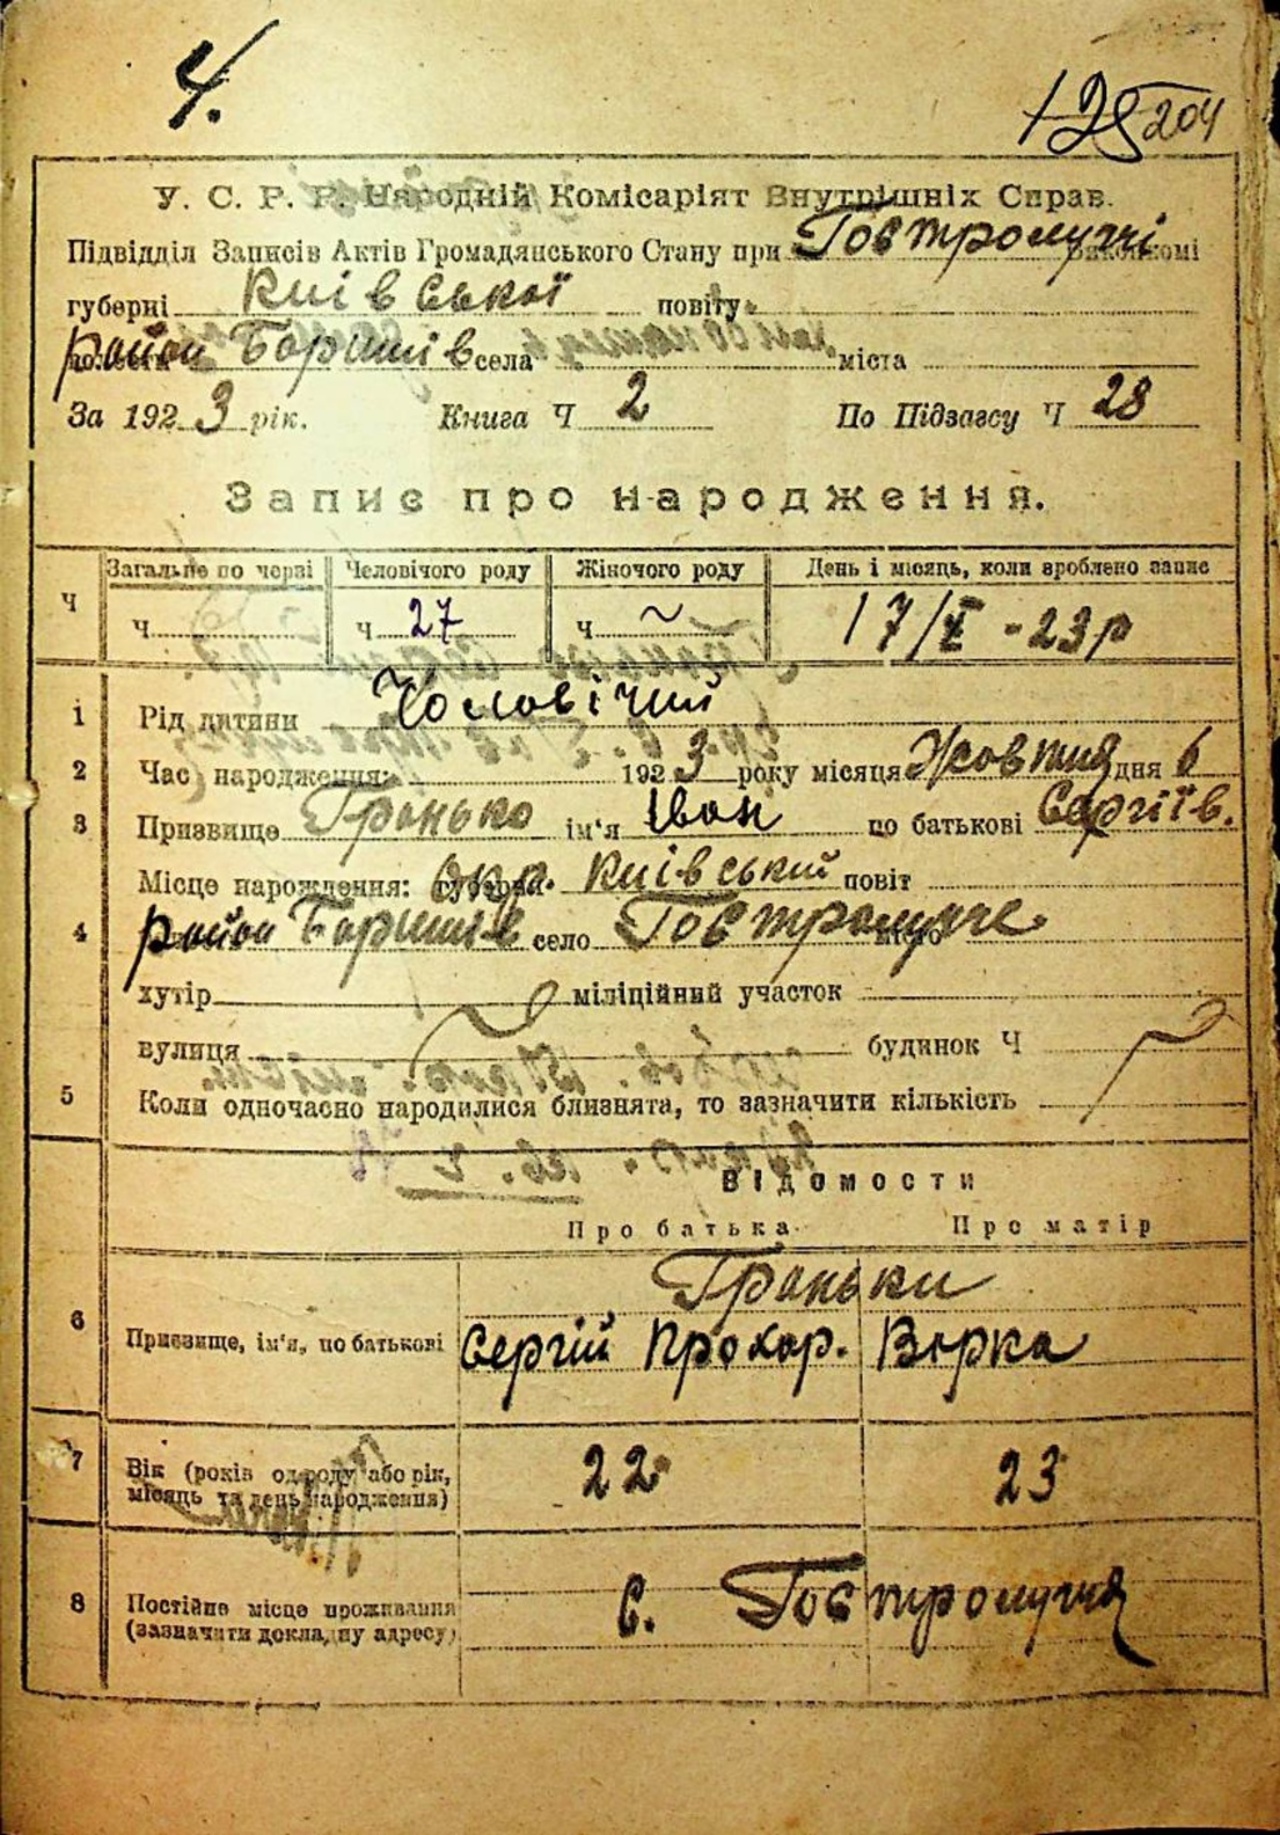 4.
125 204
У. С. Р. Р. Народній Комісаріят Внутрішніх Справ.
Підвідділ Записів Актів Громадянського Стану при Гостролуччі Виконкомі
губерні Київської повіту
район Баришів села міста
За 1923 рік. Книга Ч 2 По Підзагсу Ч 28
Запис про народження.
Загальне по черзі Человічого роду Жіночого роду День і місяць, коли зроблено запис
Ч ч. ч. 27 ч. ~ 17/X - 23 р
1 Рід дитини Чоловічий
2 Час народження: 1923 року місяця Жовтня дня 6
3 Призвище Гронько ім'я Іван по батькові Сергіїв.
Місце народження: Окр. губерня Київський повіт
4 район Баришів село Гостролуччє місто
хутір міліційний участок
вулиця будинок Ч
5 Коли одночасно народилися близнята, то зазначити кількість
Відомости
Про батька Про матір
Гроньки
6 Призвище, ім'я, по батькові Сергій Прохор. Варка
7 Вік (років од роду або рік, 22 23
місяць та день народження)
8 Постійне місце проживання С. Гостролуччя
(зазначити докладну адресу)